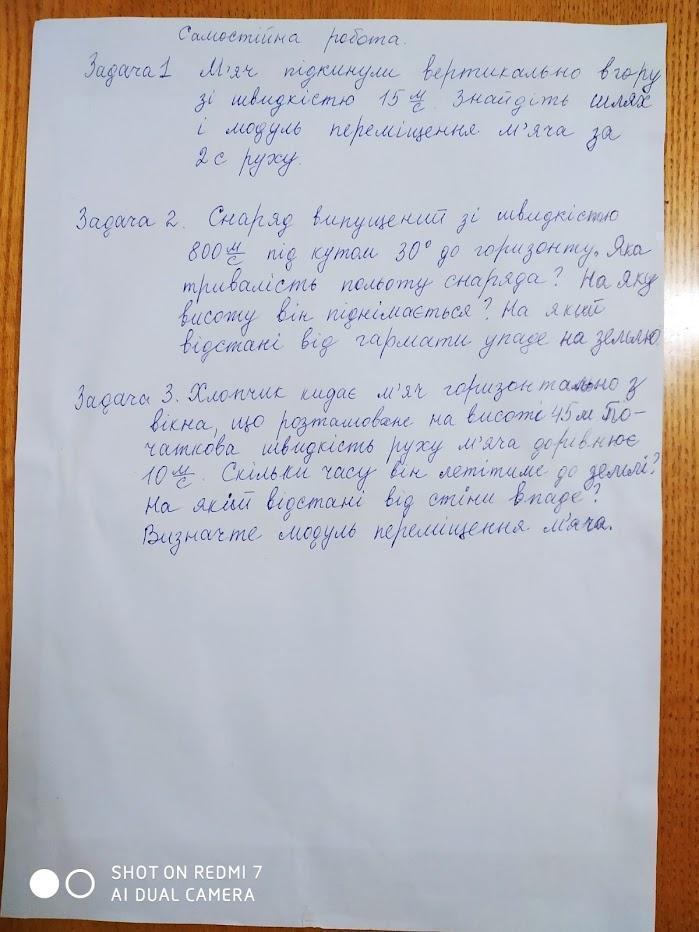 Самостійна робота.
Задача 1 М'яч підкинули вертикально вгору
зі швидкістю 15 м/с. Знайдіть шлях
і модуль переміщення м'яча за
2с руху.
Задача 2. Снаряд випущений зі швидкістю
800 м/с під кутом 30° до горизонту. Яка
тривалість польоту снаряда? На яку
висоту він піднімається? На якій
відстані від гармати упаде на землю
Задача 3. Хлопчик кидає м'яч горизонтально з
вікна, що розташоване на висоті 45м По-
чаткова швидкість руху м'яча дорівнює
10 м/с. Скільки часу він летітиме до землі?
На якій відстані від стіни впаде?
Визначте модуль переміщення м'яча.
SHOT ON REDMI 7
AI DUAL CAMERA